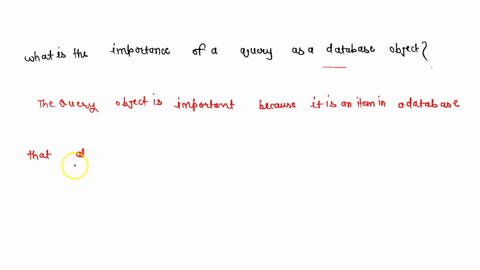 what is the importance of a query as a database object?
The Query object is important because it is an item in a database
that